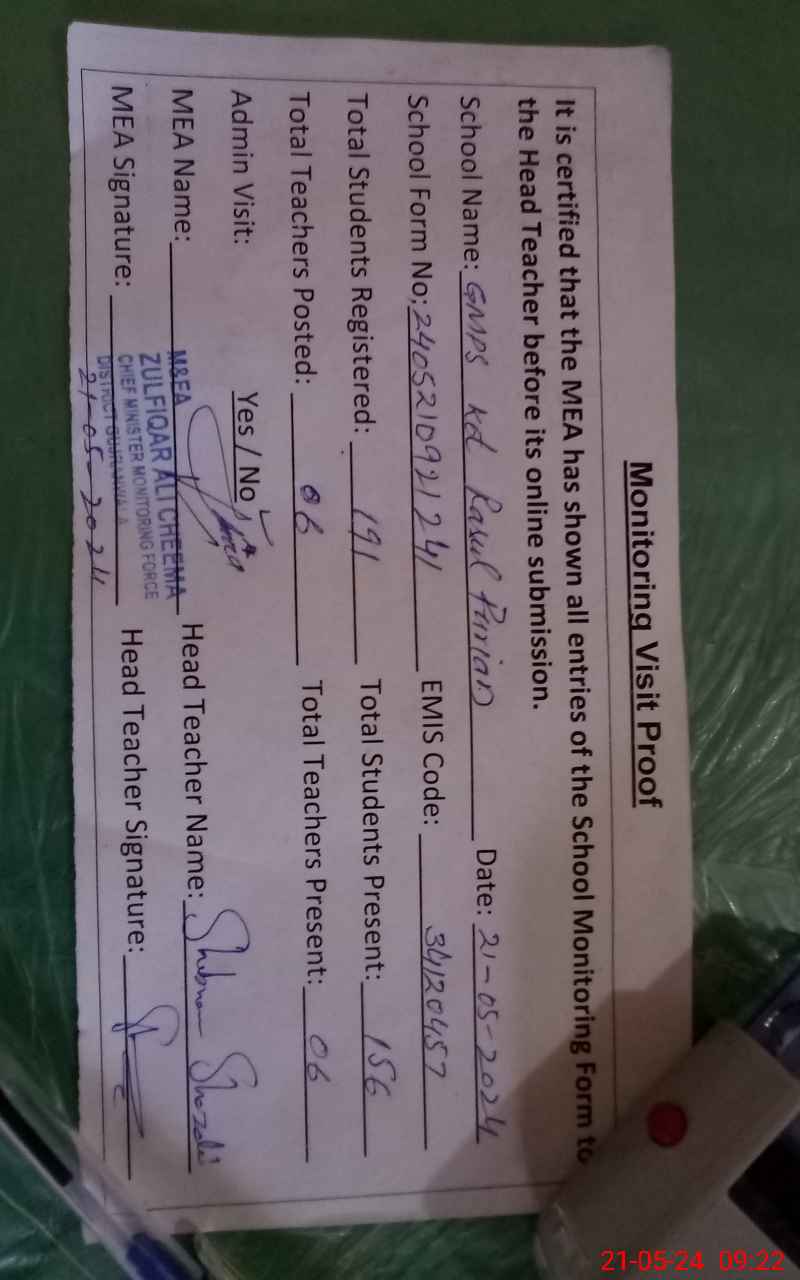 Monitoring Visit Proof
It is certified that the MEA has shown all entries of the School Monitoring Form to
the Head Teacher before its online submission.
School Name: GMPS Kd Rasul Purian Date: 21-05-2024
School Form No; 2405210921241 EMIS Code: 34120457
Total Students Registered: 191 Total Students Present: 156
Total Teachers Posted: 06 Total Teachers Present: 06
Admin Visit: Yes / No ✓
MEA Name: Head Teacher Name: Shabnam
M&FA
ZULFIQAR ALI CHEEMA
CHIEF MINISTER MONITORING FORCE
DISTRICT GUJRANWALA
MEA Signature: 21-05-2024 Head Teacher Signature:
21-05-24 09:22